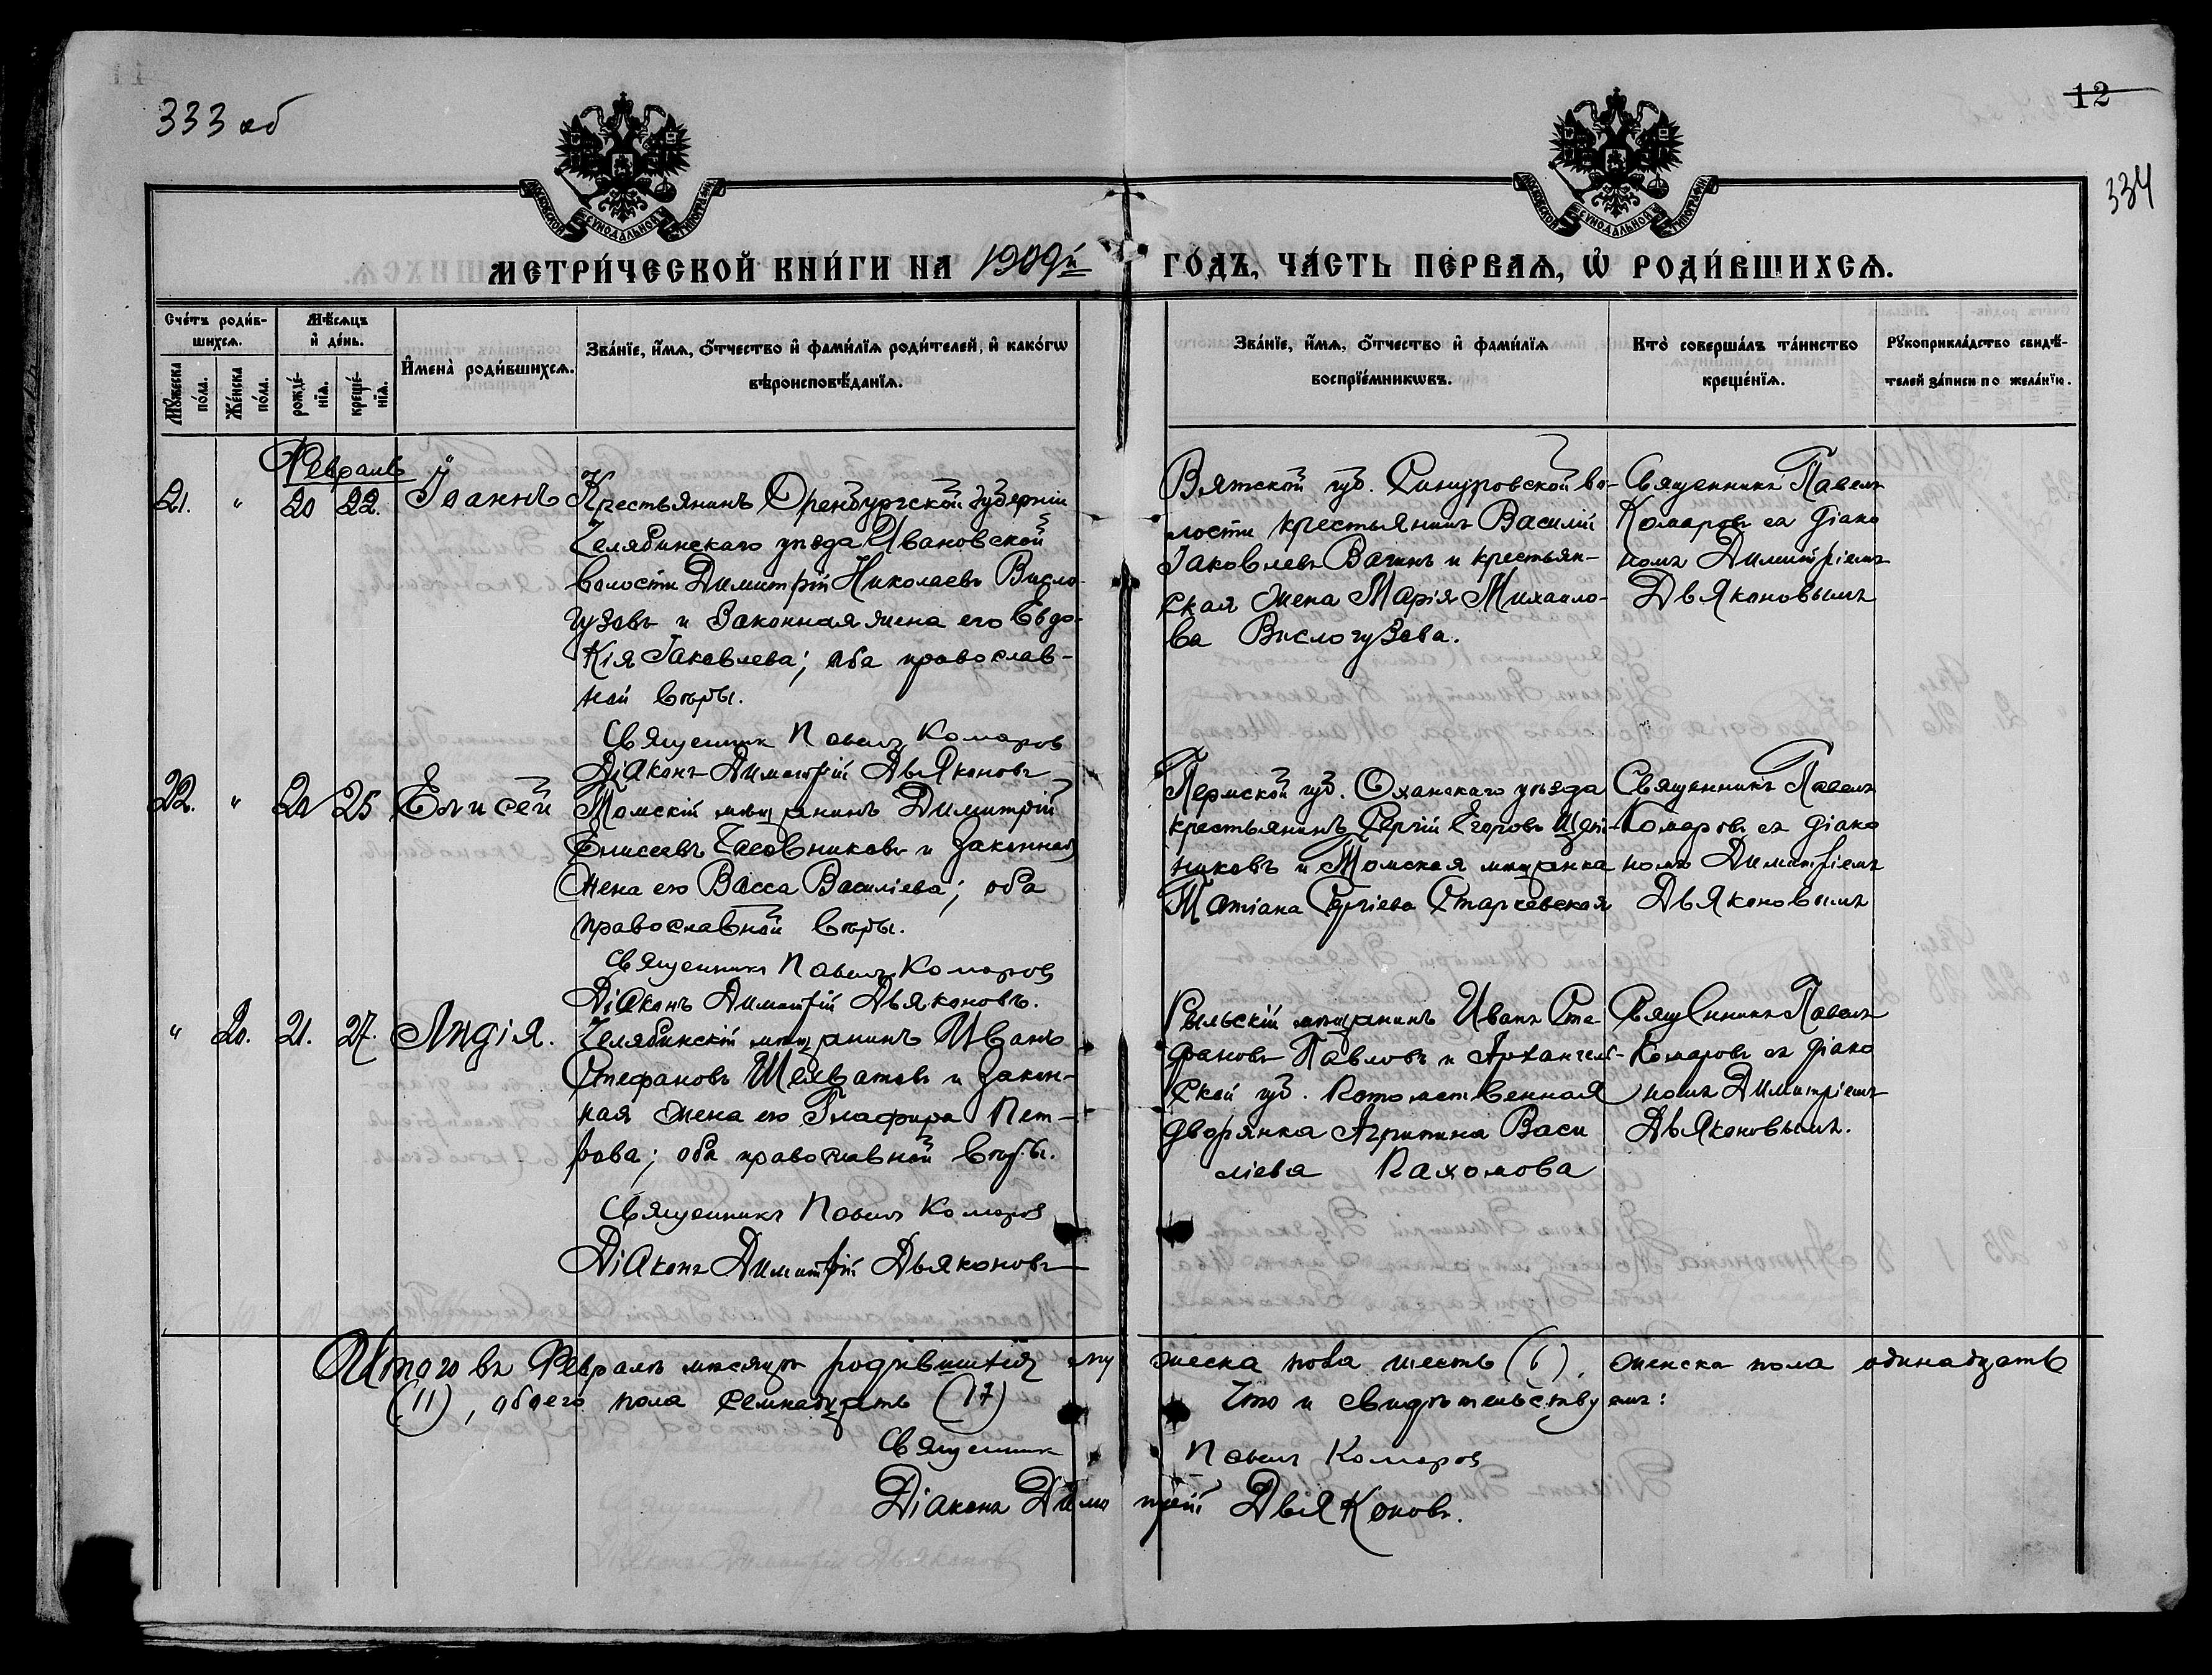 333 об
12
334
МОСКОВСКОЙ СѴНОДАЛЬНОЙ ТИПОГРАФІИ
МОСКОВСКОЙ СѴНОДАЛЬНОЙ ТИПОГРАФІИ
МЕТРИ́ЧЕСКОЙ КНИ́ГИ НА 1909й ГО́ДЪ, ЧА́СТЬ ПЕ́РВАѦ, Ѡ҆ РОДИ́ВШИХСѦ.
Сче́тъ роди́в-
шихсѧ.
Мꙋ́жеска по́ла.
Же́нска по́ла.
Мѣ́сѧцъ
и҆ де́нь.
рожде́-нїѧ.
креще́-нїѧ.
И҆мена̀ роди́вшихсѧ.
Зва́нїе, и҆́мѧ, ѻ҆́тчество и҆ фами́лїѧ роди́телей, и҆ како́гѡ
вѣроисповѣ́данїѧ.
Зва́нїе, и҆́мѧ, ѻ҆́тчество и҆ фами́лїѧ
воспрїе́мникѡвъ.
Кто̀ соверша́лъ та́инство
креще́нїѧ.
Рꙋкоприкла́дство свидѣ́-
телей за́писи по жела́нїю.
Февраль
21. " 20 22. Іоаннъ
Крестьянинъ Оренбургской губерніи
Челябинскаго уѣзда Ивановской
волости Димитрій Николаевъ Висло-
гузовъ и законная жена его Евдо-
кія Іаковлева; оба православ-
ной вѣры.
Священник Павелъ Комаров
Діаконъ Димитрій Дьяконовъ
Вятской губ. Синцовской во-
лости крестьянинъ Василій
Іаковлевъ Вагинъ и крестьян-
ская жена Марія Михаило-
ва Вислогузова.
Священникъ Павелъ
Комаровъ съ діако
номъ Димитріемъ
Дьяконовымъ
22. " 20 25 Елисей
Томскій мѣщанинъ Димитрій
Елисеевъ Часовниковъ и законная
жена его Васса Василіева; оба
православной вѣры.
Священникъ Павелъ Комаров
Діаконъ Димитрій Дьяконовъ.
Пермской губ. Оханскаго уѣзда
крестьянинъ Сергій Егоровъ Щет-
никовъ и Томская мѣщанка
Татіана Сергіева Старчевская
Священникъ Павелъ
Комаровъ съ діако
номъ Димитріемъ
Дьяконовымъ
" 20. 21. 27. Лидія.
Челябинскій мѣщанинъ Иванъ
Стефановъ Шелватовъ и закон-
ная жена его Глафира Пет-
рова; оба православной вѣры.
Священникъ Павелъ Комаров
Діаконъ Димитрій Дьяконовъ
Рыльскій мѣщанинъ Иванъ Сте
фановъ Павловъ и Архангель-
ской губ. потомственная
дворянка Агрипина Васи
ліева Пахомова
Священникъ Павелъ
Комаровъ съ діако
номъ Димитріемъ
Дьяконовымъ.
Итого въ Февралѣ мѣсяцѣ родившихся мужеска пола шесть (6), женска пола одинадцать
(11), обоего пола семнадцать (17) Что и свидѣтельствуемъ:
Священник Павелъ Комаров
Діаконъ Димитрій Дьяконовъ.